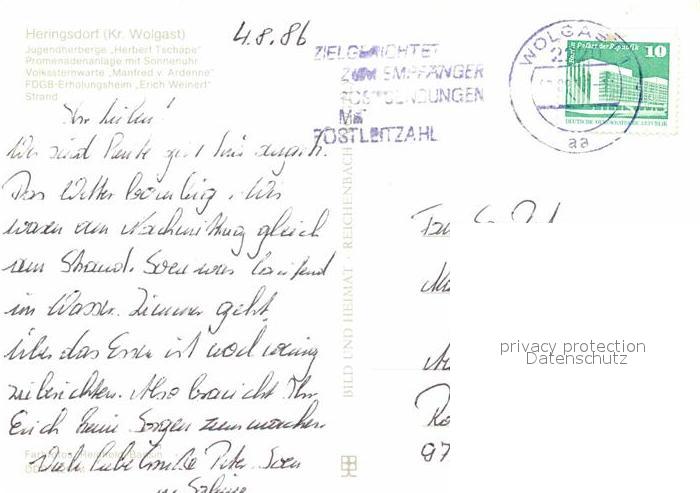 Heringsdorf (Kr. Wolgast)
Jugendherberge „Herbert Tschäpe"
Promenadenanlage mit Sonnenuhr
Volkssternwarte „Manfred v. Ardenne"
FDGB-Erholungsheim „Erich Weinert"
Strand
4.8.86
ZIELGERICHTET
ZUM EMPFÄNGER
POSTSENDUNGEN
MIT
POSTLEITZAHL
WOLGAST 1
aa
Palast der Republik 10
DEUTSCHE DEMOKRATISCHE REPUBLIK
Ihr Lieben!
Wir sind heute gut hier
Das Wetter Wir
waren am Nachmittag gleich
am Strand. Sven war laufend
im Wasser. Zimmer geht.
Über das Essen ist noch wenig
zu berichten. Also braucht Ihr
Euch keine Sorgen zu machen
Viele liebe Grüße Peter, Sven
u.
BILD UND HEIMAT · REICHENBACH
97
privacy protection
Datenschutz